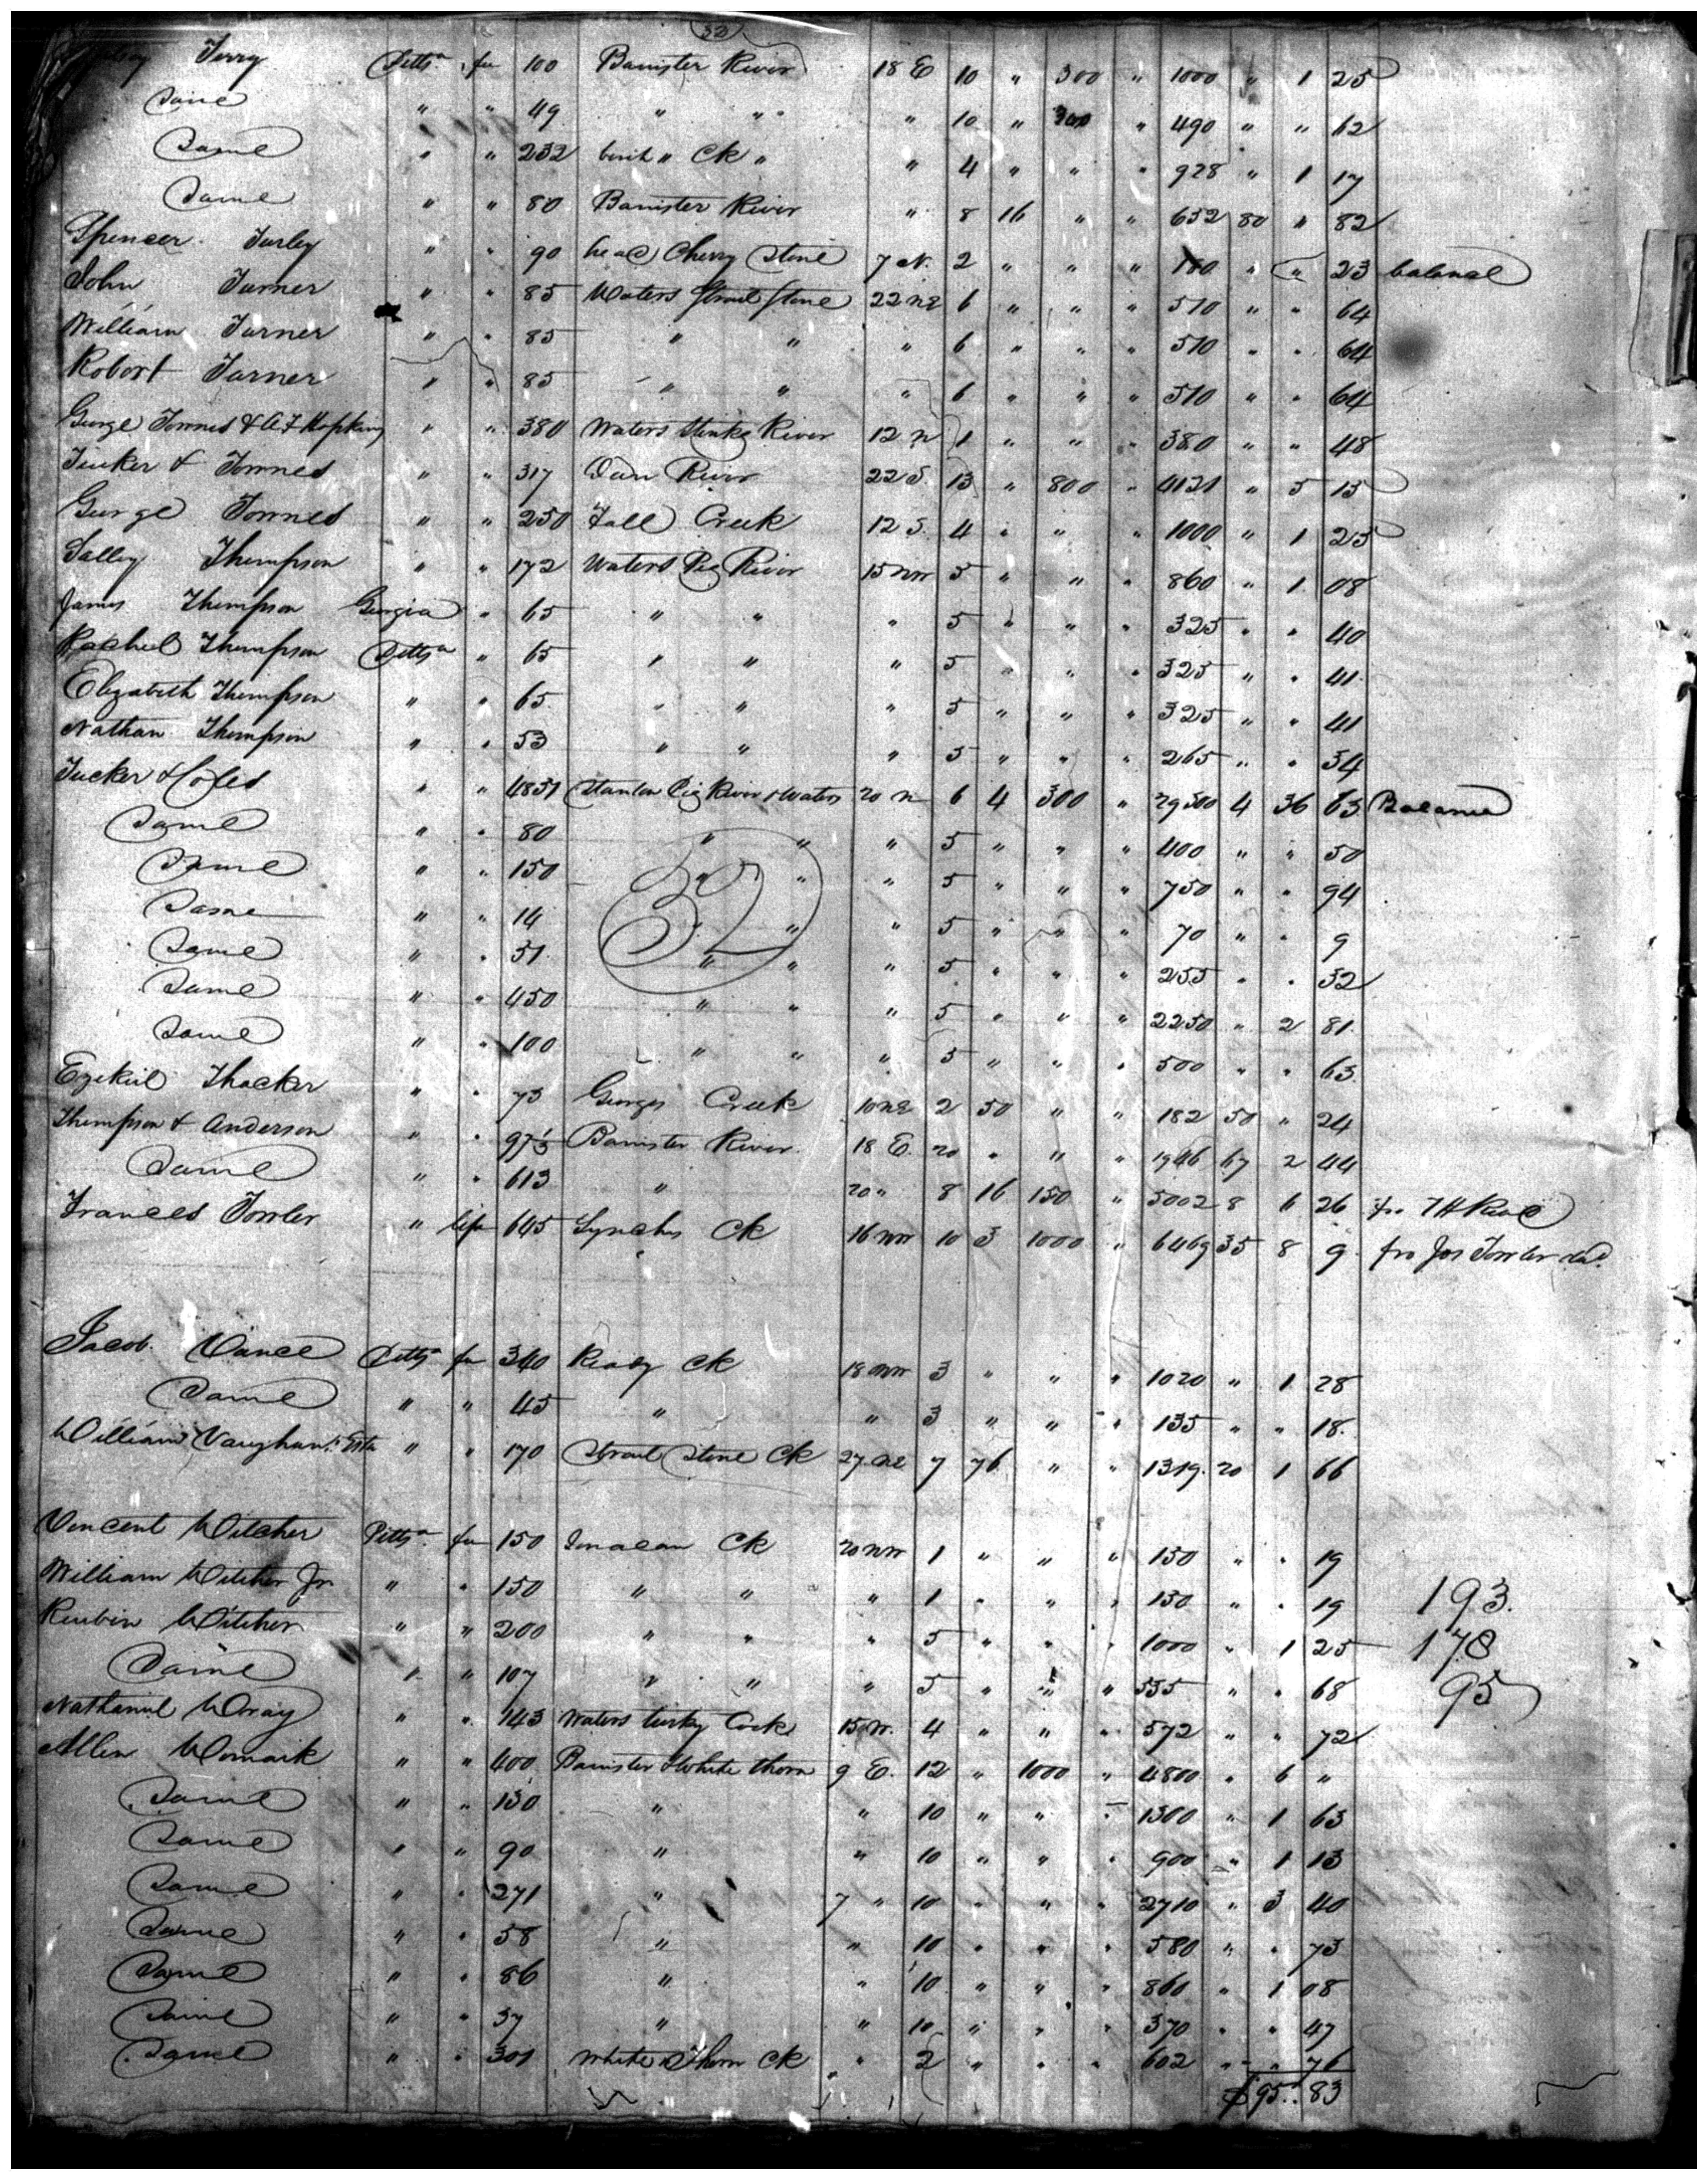 32
Terry Pittsa fee 100 Banister River 18 E 10 " 300 " 1000 " 1 25
Same " " 49 " " " 10 " 300 " 490 " " 62
Same " " 232 " Ck " " 4 " " " 928 " 1 17
Same " " 80 Banister River " 8 16 " " 652 80 " 82
Spencer Turley " " 90 head Cherry Stone 7 N. 2 " " " 180 " " 23 balance
John Turner " " 85 Waters Strait Stone 22 NE 6 " " " 510 " " 64
William Turner " " 85 " " " 6 " " " 510 " " 64
Robert Turner " " 85 " " " 6 " " " 510 " " 64
George Townes & A F Hopkins " " 380 Waters Stinkg River 12 N 1 " " " 380 " " 48
Tucker & Townes " " 317 Dan River 22 S. 13 " 800 " 4121 " 5 15
George Townes " " 250 Fall Creek 12 S. 4 " " " 1000 " 1 25
Salley Thompson " " 172 Waters Pig River 15 NW 5 " " " 860 " 1 08
James Thompson Georgia " 65 " " " 5 " " " 325 " " 40
Racheel Thompson Pittsa " 65 " " " 5 " " " 325 " " 41
Elizabeth Thompson " " 65 " " " 5 " " " 325 " " 41
Nathan Thompson " " 53 " " " 5 " " " 265 " " 34
Tucker & Coles " " 4831 Stanton Pig River & Waters 20 N 6 4 300 " 29300 4 36 63 Balance
Same " " 80 " " " 5 " " " 400 " " 50
Same " " 150 " " " 5 " " " 750 " " 94
32
Same " " 14 " " " 5 " " " 70 " " 9
Same " " 51 " " " 5 " " " 255 " " 32
Same " " 450 " " " 5 " " " 2250 " 2 81
Same " " 100 " " " 5 " " " 500 " " 63
Ezekiel Thacker " " 73 Georges Creek 10 NE 2 50 " " 182 50 " 24
Thompson & Anderson " " 97⅓ Banister River 18 E. 20 " " " 1946 67 2 44
Same " " 613 " 20 " 8 16 150 " 5002 8 6 26
Frances Towler " life 645 Lynches Ck 16 NW 10 3 1000 " 6469 35 8 9 fro Jos Towler decd.
Jacob Vance Pittsa fee 340 Ready Ck 18 NW 3 " " " 1020 " 1 28
Same " " 45 " " 3 " " " 135 " " 18
William Vaughans Esta " " 170 Strait Stone Ck 27 NE 7 76 " " 1319 20 1 66
Vincent Witcher Pittsa fee 150 Ck 20 NW 1 " " " 150 " " 19
William Witcher Jr " " 150 " " " 1 " " " 150 " " 19 193.
Reubin Witcher " " 200 " " " 5 " " " 1000 " 1 25 178
Same " " 107 " " " 5 " " " 535 " " 68 95
Nathaniel Wray " " 143 Waters turky Cock 15 W. 4 " " " 572 " " 72
Allen Womaik " " 400 Banister & White thorn 9 E. 12 " 1000 " 4800 " 6 "
Same " " 130 " " 10 " " " 1300 " 1 63
Same " " 90 " " 10 " " " 900 " 1 13
Same " " 271 " 7 " 10 " " " 2710 " 3 40
Same " " 58 " " 10 " " " 580 " " 73
Same " " 86 " " 10 " " " 860 " 1 08
Same " " 37 " " 10 " " " 370 " " 47
Same " " 301 White Thorn Ck " 2 " " " 602 " " 76
$95..83